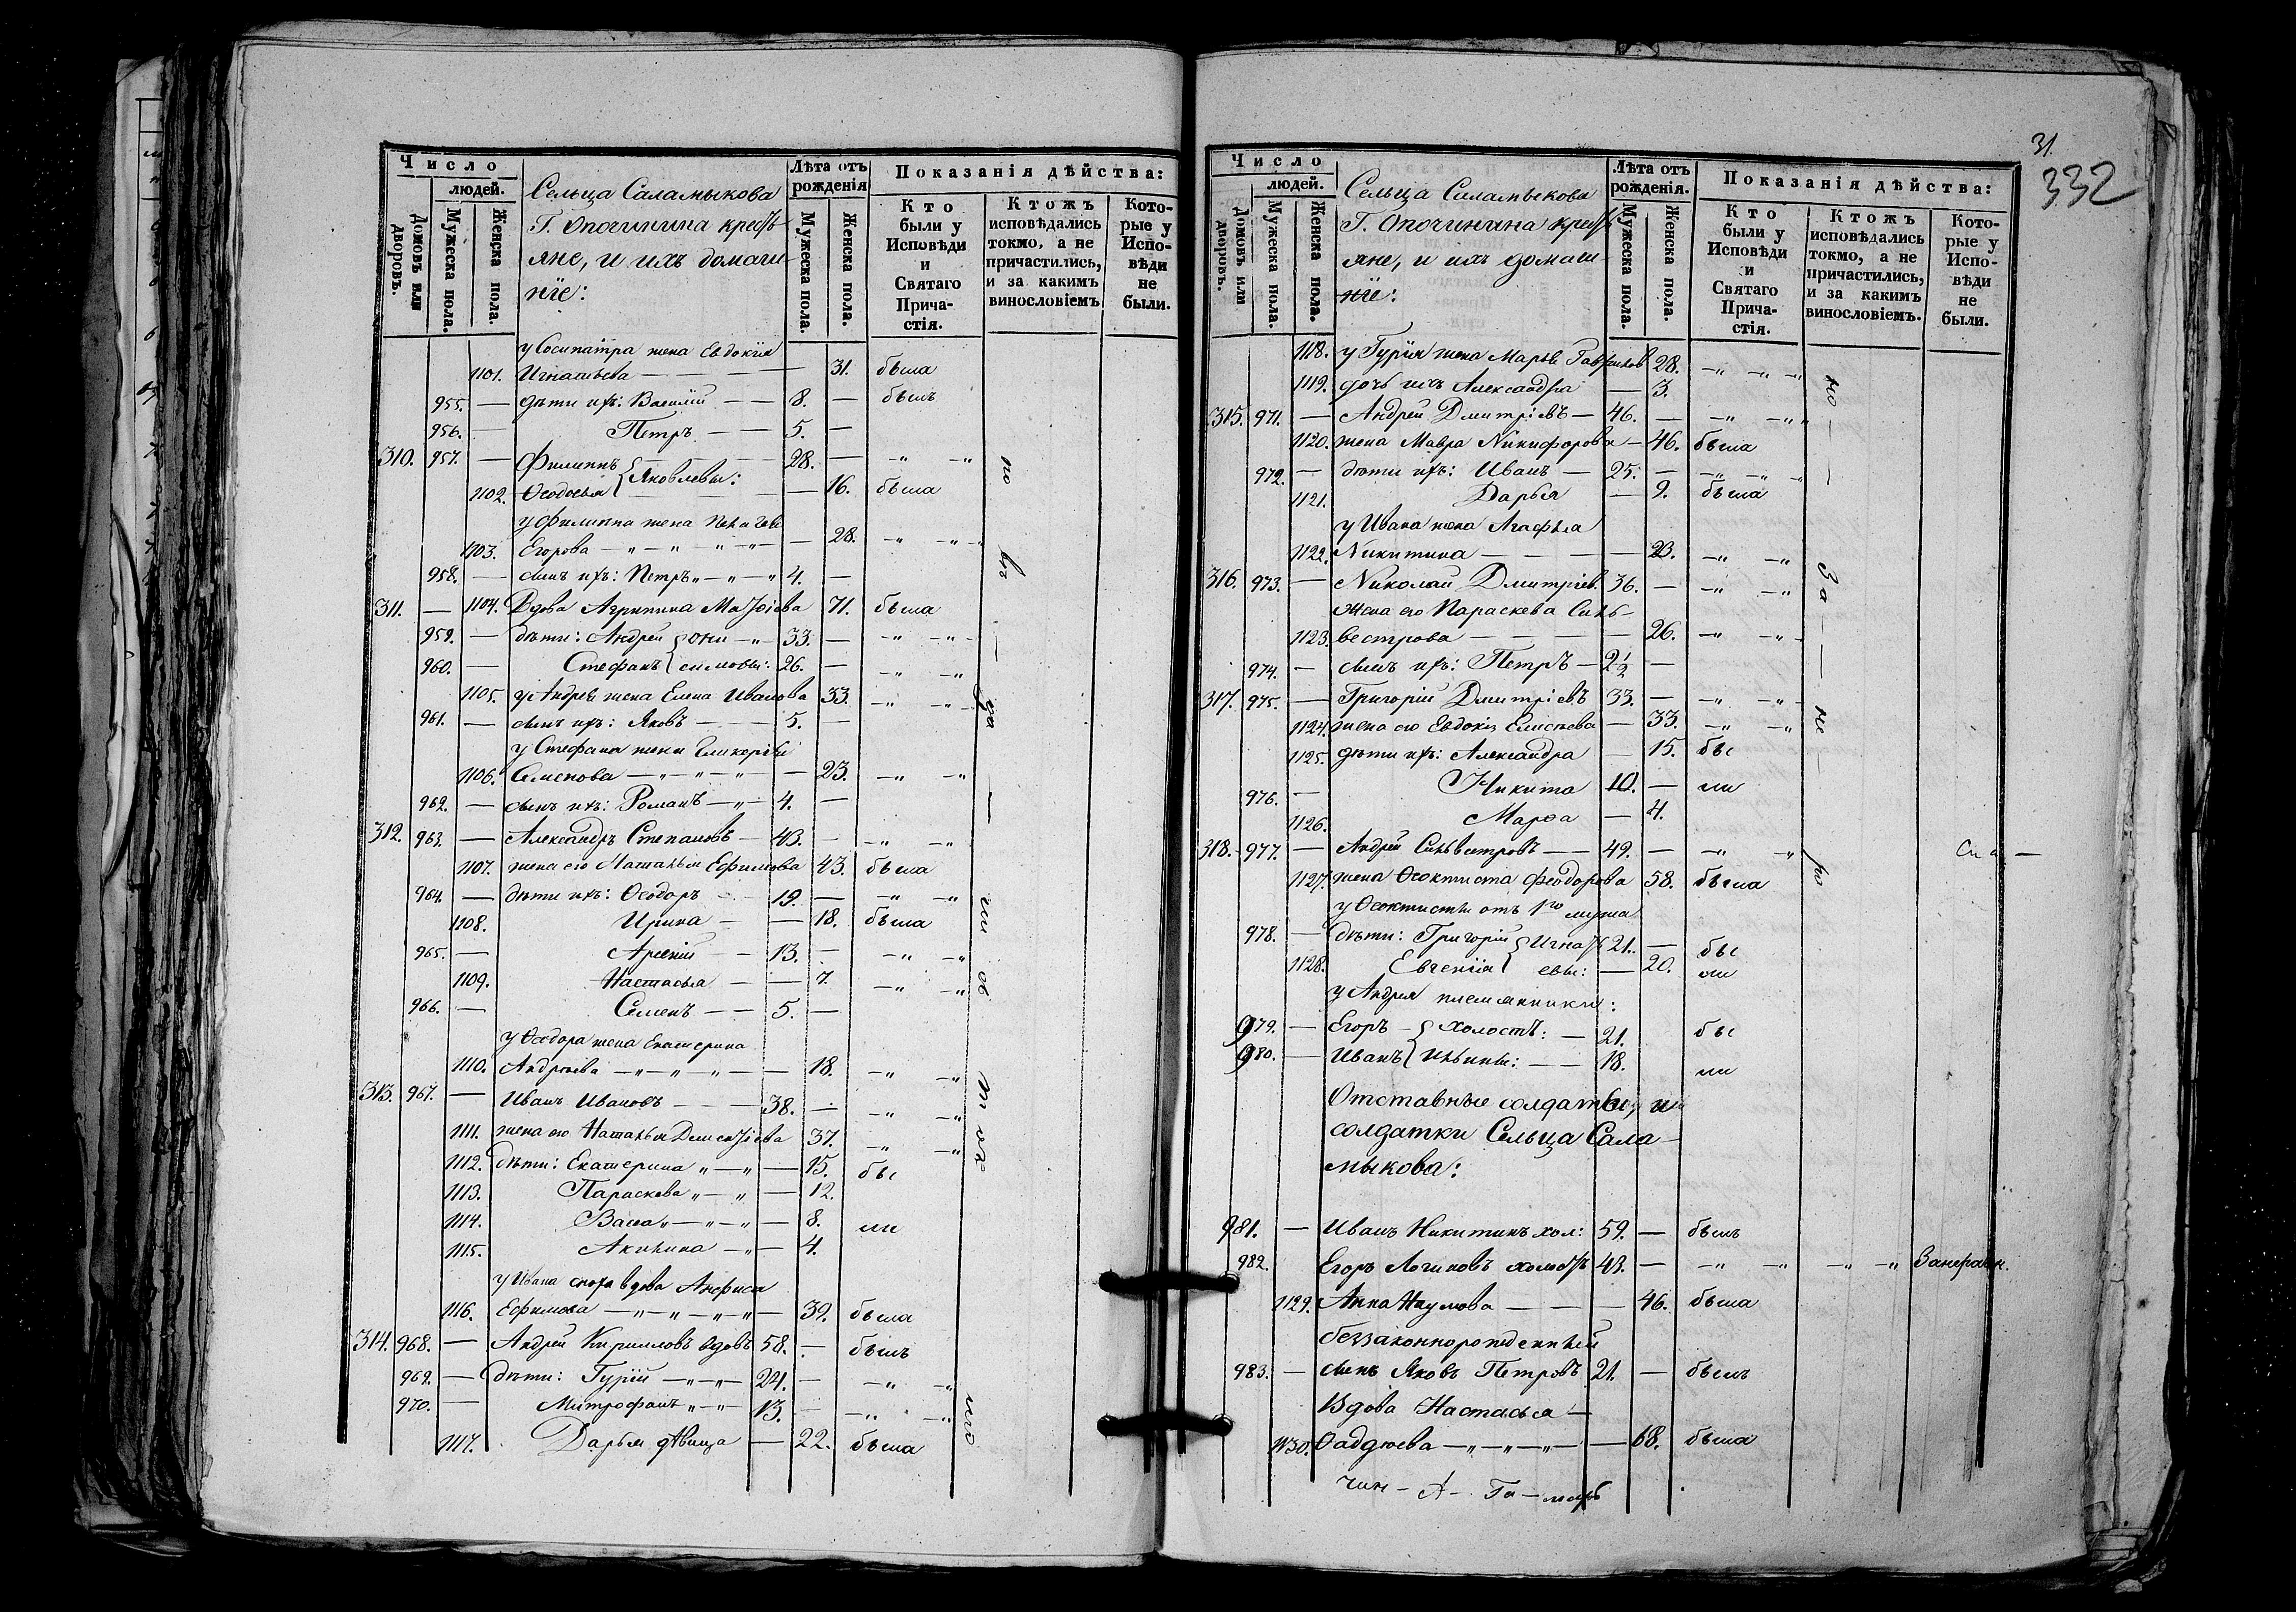 Число
людей.
Домовъ или дворовъ.
Мужеска пола.
Женска пола.
Сельца Саламыкова
Г. Опочинина кресть
яне, и ихъ домаш-
ніе:
Лѣта отъ рожденія
Мужеска пола.
Женска пола.
Показанія дѣйства:
Кто были у Исповѣди и Святаго Прича-стія.
Ктожъ исповѣдались токмо, а не причастились, и за какимъ винословіемъ
Кото-рые у Испо-вѣди не были.
у Сосипатра жена Евдокія
1101. Игнатьева — 31. была
955. — дѣти ихъ: Василій — 8. — былъ
956. — Петръ — 5. —
310. 957. — Филиппъ 28. — „ „
Яковлевы:
1102. Ѳеодосья — 16. была
у Филиппа жена Пелагея
1103. Егорова — 28. „ „
958. — сынъ ихъ: Петръ 4. —
311. — 1104. Вдова Агрипина Матѳіева 71. была
959. — дѣти: Андрей Они- 33. — „ „
960. — Стефанъ симовы: 26. — „ „
1105. у Андрея жена Елена Иванова 33. „ „
961. — сынъ ихъ: Яковъ — 5. —
у Стефана жена Гликерія
1106. Семенова — 23. „ „
962. — сынъ ихъ: Романъ 4. —
312. 963. — Александръ Степановъ — 43. — „ „
1107. жена его Наталья Ефимова 43. была
964. — дѣти ихъ: Ѳеодоръ 19. — „ „
1108. Ирина — 18. была
965. — Арсеній — 13. — „ „
1109. Настасья — 7. „ „
966. — Семенъ — 5. —
у Ѳеодора жена Екатерина
1110. Андреева — 18. „ „
313. 967. — Иванъ Ивановъ — 38. — „ „
1111. жена его Наталья Дементіева 37. „ „
1112. дѣти: Екатерина — 15. бы
1113. Параскева — 12.
1114. Васса — 8. ли
1115. Акилина — 4.
у Ивана сноха вдова Анфиса
1116. Ефимова — 39. была
314. 968. — Андрей Кирилловъ вдовъ 58. — былъ
969. — дѣти: Гурій — 24. — „ „
970. — Митрофанъ 13. — „ „
1117. Дарья дѣвица — 22. была
31.
332
Число
людей.
Домовъ или дворовъ.
Мужеска пола.
Женска пола.
Сельца Саламыкова
Г. Опочинина кресть
яне, и ихъ домаш-
ніе:
Лѣта отъ рожденія.
Мужеска пола.
Женска пола.
Показанія дѣйства:
Кто были у Исповѣди и Святаго Прича-стія.
Ктожъ исповѣдались токмо, а не причастились, и за какимъ винословіемъ.
Кото-рые у Испо-вѣди не были.
1118. у Гурія жена Марья Гаврилов 28. „ „
1119. дочь ихъ Александра — 3.
315. 971. — Андрей Дмитріевъ — 46. — „ „
1120. жена Мавра Никифорова — 46. была
972. — дѣти ихъ: Иванъ — 25. — „ „
1121. Дарья — 9. была
у Ивана жена Агафья
1122. Никитина — 23. „ „
316. 973. — Николай Дмитріев. 36. — „ „
жена его Параскева Силь-
1123. вестрова — 26. „ „
974. — сынъ ихъ: Петръ — 2½ —
317. 975. — Григорій Дмитріевъ 33. — „ „
1124. жена его Евдокія Елисѣева — 33. „ „
1125. дѣти ихъ: Александра — 15. бы
976. — Никита 10. — ли
1126. Марѳа — 4.
318. 977. — Андрей Сильвестровъ — 49. — „ „
1127. жена Ѳеоктиста Феодорова 58. была
у Ѳеоктисты отъ 1го мужа
978. — дѣти: Григорій Игнать 21. — бы
1128. Евгенія евы: — 20. ли
у Андрея племянники:
979. — Егоръ холостъ: — 21. бы
980. — Иванъ Ильины: — 18. ли
Отставные солдаты, и
солдатки Сельца Сала-
мыкова:
981. — Иванъ Никитинъ хол: 59. — былъ
982. Егоръ Логиновъ холостъ 43. — „ „ „ „
1129. Анна Наумова — 46. была
беззаконнорожденный
983. — сынъ Яковъ Петровъ 21. — былъ
Вдова Настасья —
1130. Ѳаддеева — 68. была